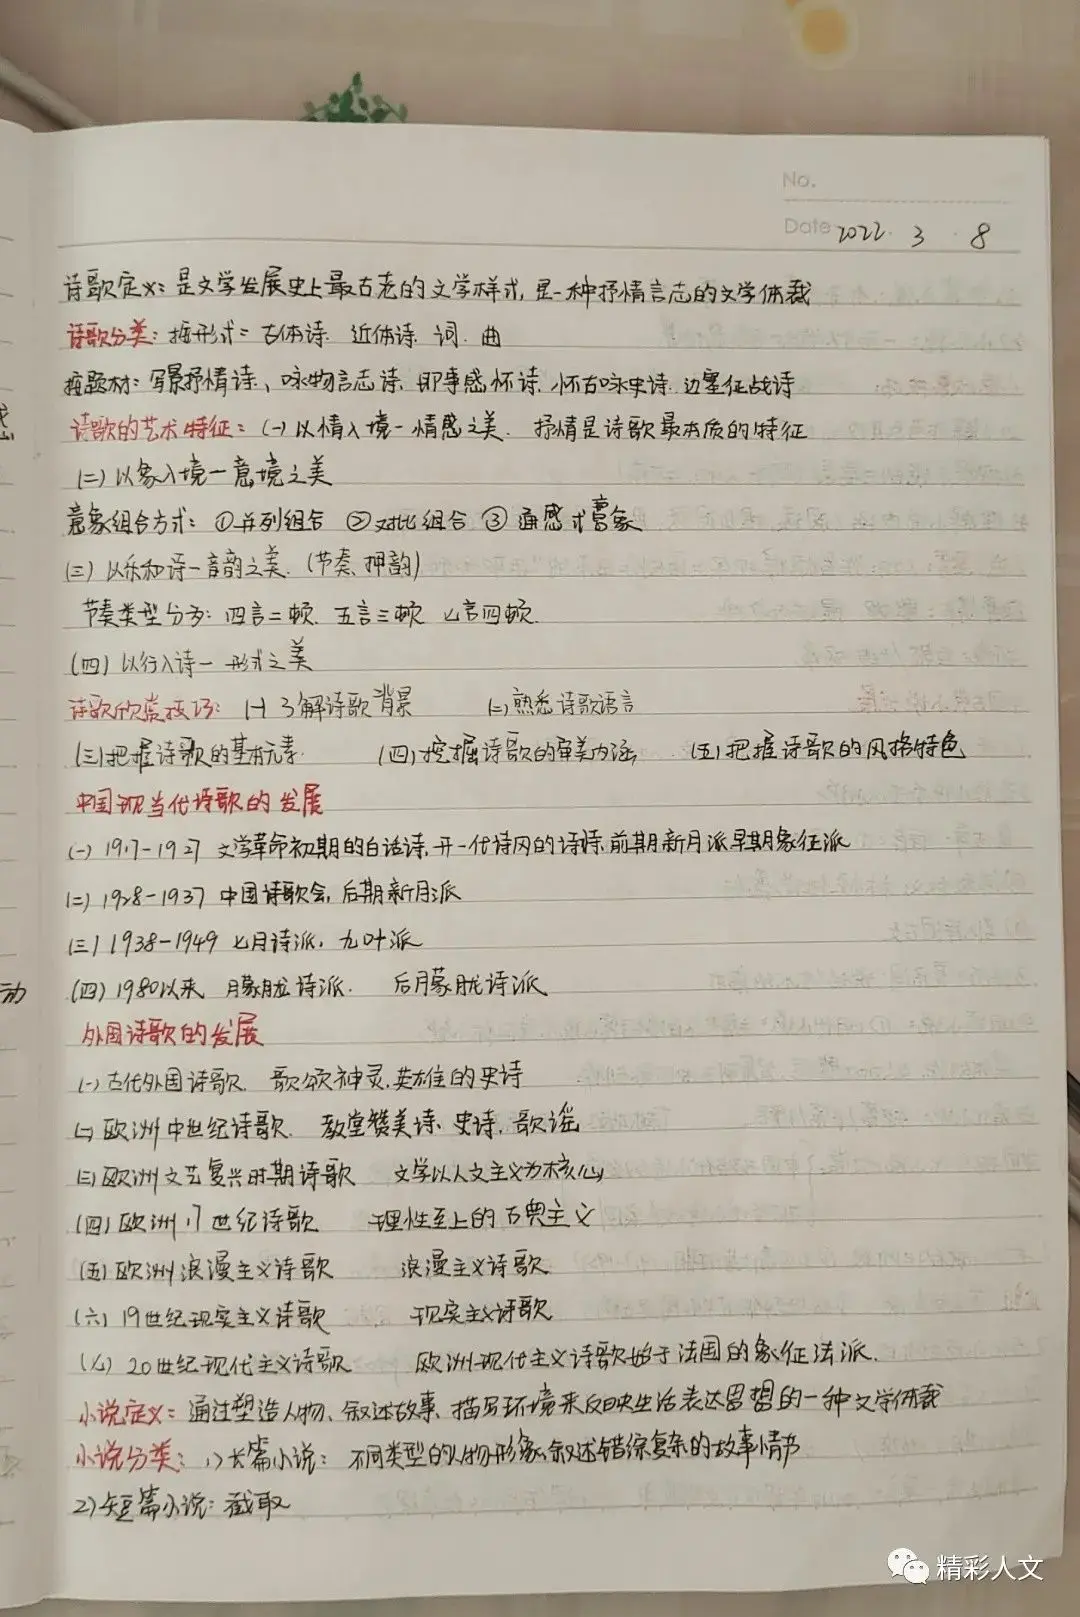 No.
Date 2022. 3 . 8
诗歌定义: 是文学发展史上最古老的文学样式, 是一种抒情言志的文学体裁
诗歌分类: 按形式: 古体诗. 近体诗. 词. 曲
按题材: 写景抒情诗、咏物言志诗. 即事感怀诗. 怀古咏史诗. 边塞征战诗
诗歌的艺术特征: (一) 以情入境一情感之美. 抒情是诗歌最本质的特征
(二) 以象入境一意境之美
意象组合方式: ①并列组合 ②对比组合 ③通感式意象
(三) 以乐和诗一音韵之美. (节奏、押韵)
节奏类型分为: 四言二顿. 五言三顿 七言四顿.
(四) 以行入诗一形式之美
诗歌欣赏技巧: (一) 了解诗歌背景 (二) 熟悉诗歌语言
(三)把握诗歌的基本元素. (四)挖掘诗歌的审美内涵 (五)把握诗歌的风格特色
中国现当代诗歌的发展
(一) 1917-1927 文学革命初期的白话诗, 开一代诗风的诗 前期新月派 早期象征派
(二) 1928-1937 中国诗歌会, 后期新月派
(三) 1938-1949 七月诗派. 九叶派
(四) 1980以来 朦胧诗派. 后朦胧诗派
外国诗歌的发展
(一) 古代外国诗歌. 歌颂神灵, 英雄的史诗
(二) 欧洲中世纪诗歌. 教堂赞美诗. 史诗. 歌谣
(三)欧洲文艺复兴时期诗歌 文学以人文主义为核心
(四)欧洲17世纪诗歌 理性至上的古典主义
(五)欧洲浪漫主义诗歌 浪漫主义诗歌
(六) 19世纪现实主义诗歌 现实主义诗歌
(七) 20世纪现代主义诗歌 欧洲现代主义诗歌始于法国的象征法派.
小说定义: 通过塑造人物、叙述故事、描写环境来反映生活表达思想的一种文学体裁
小说分类: 1)长篇小说: 不同类型的人物形象、叙述错综复杂的故事情节
2)短篇小说: 截取
动
精彩人文